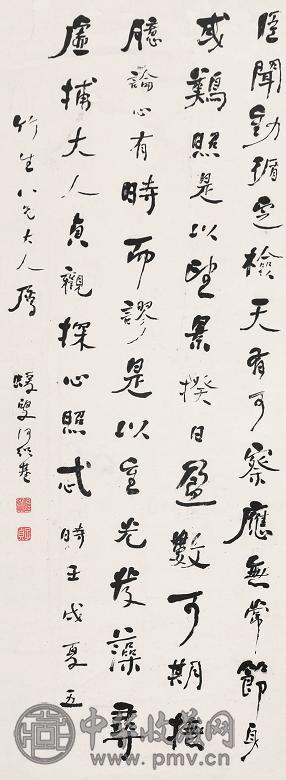 臣聞動循定檢天有可察應無常節身
或難照是以望景揆日盈數可期撫
臆論心有時而謬是以重光發藻尋
虛捕大人貞觀探心照忒 時壬戌夏五
竹生八兄大人属 蝯叟何紹基
中華收藏網
www.pmv.cn